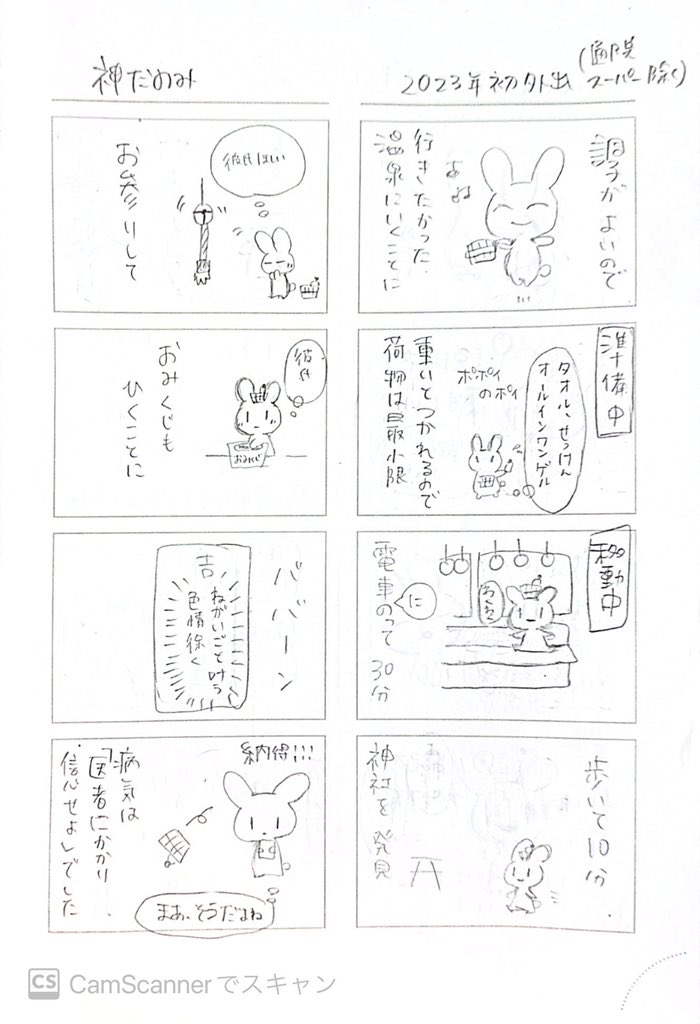 2023年初外出
(通院
スーパー除く)
調子がよいので
行きたかった
温泉にいくことに
準備中
タオル、せっけん
オールインワンゲル
ポポイ
のポイ
重いとつかれるので
荷物は最小限
移動中
わくわく
電車のって
に
30分
歩いて10分
神社を発見
神だのみ
彼氏ほしい
お参りして
彼氏
おみくじも
ひくことに
おみくじ
ババーン
吉
ねがいごと叶う
色情除く
納得!!!
病気は
「医者にかかり
信心せよ」でした
まあ、そうだよね
CS CamScannerでスキャン